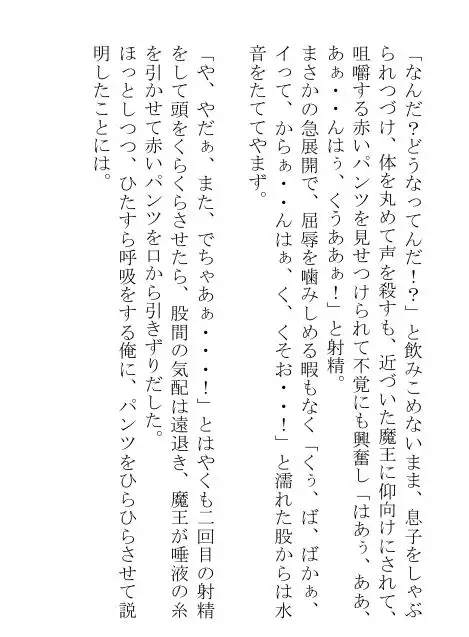 「なんだ？どうなってんだ！？」と飲みこめないまま、息子をしゃぶ
られつづけ、体を丸めて声を殺すも、近づいた魔王に仰向けにされて、
咀嚼する赤いパンツを見せつけられて不覚にも興奮し「はあぅ、ああ、
あぁ・・んはぅ、くうああぁ！」と射精。
まさかの急展開で、屈辱を噛みしめる暇もなく「くぅ、ば、ばかぁ、
イって、からぁ・・んはぁ、く、くそお・・！」と濡れた股からは水
音をたててやまず。
「や、やだぁ、また、でちゃあぁ・・・！」とはやくも二回目の射精
をして頭をくらくらさせたら、股間の気配は遠退き、魔王が唾液の糸
を引かせて赤いパンツを口から引きずりだした。
ほっとしつつ、ひたすら呼吸をする俺に、パンツをひらひらさせて説
明したことには。